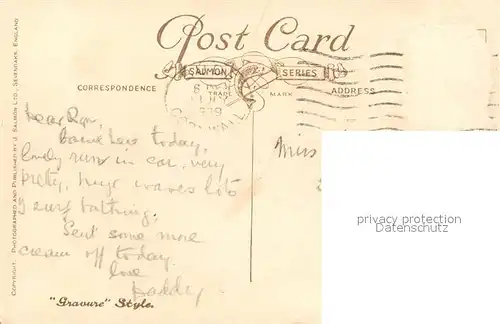 Post Card
SALMON SERIES
TRADE MARK
CORRESPONDENCE
ADDRESS
CORNWALL
COPYRIGHT. PHOTOGRAPHED AND PUBLISHED BY J. SALMON LTD., SEVENOAKS, ENGLAND
Dear
Came here today,
lovely run in car, very
pretty, huge waves lots
surf bathing.
Sent some more
cream off today.
love
Daddy
Miss
privacy protection
"Gravure" Style.